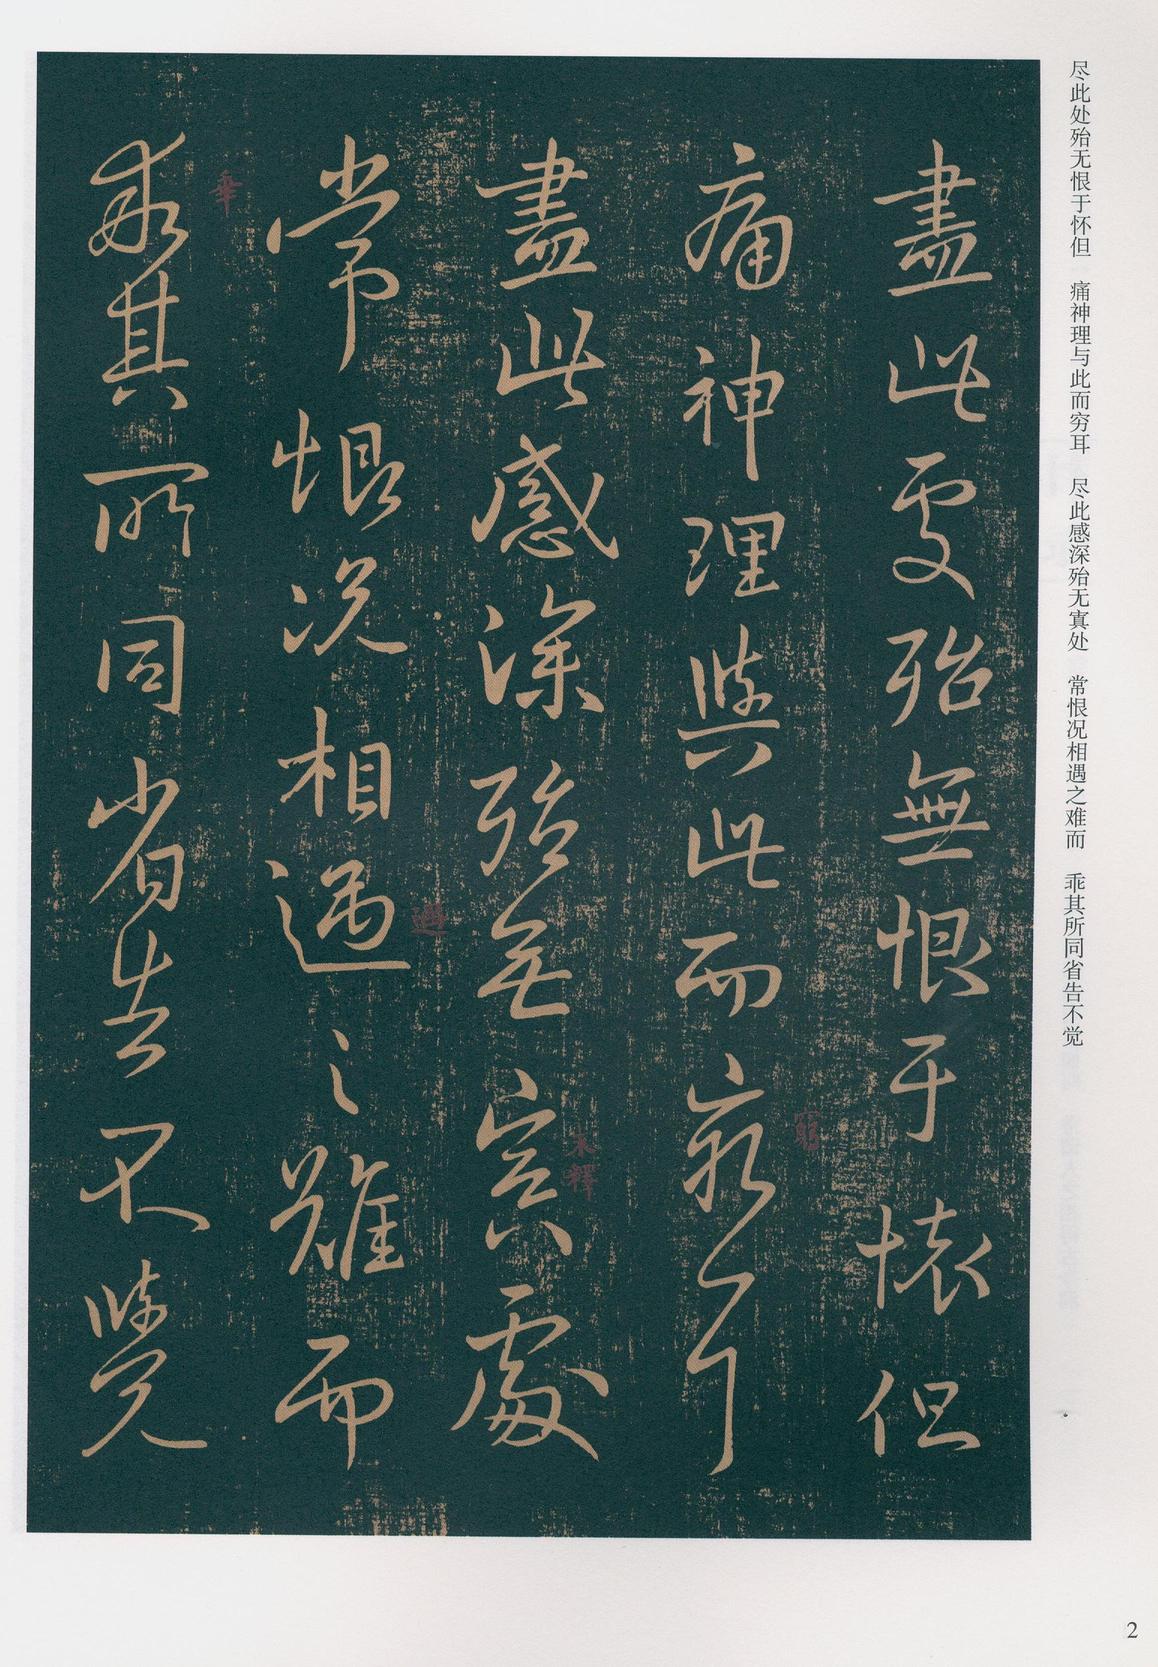 尽此处殆无恨于怀但 痛神理与此而穷耳 尽此感深殆无寘处 常恨况相遇之难而 乖其所同省告不觉
盡此處殆無恨于懷但
痛神理與此而窮耳
窮
盡此感深殆無寘處
未釋
常恨况相遇之難而
遇
乖其所同省告不覺
乖
2